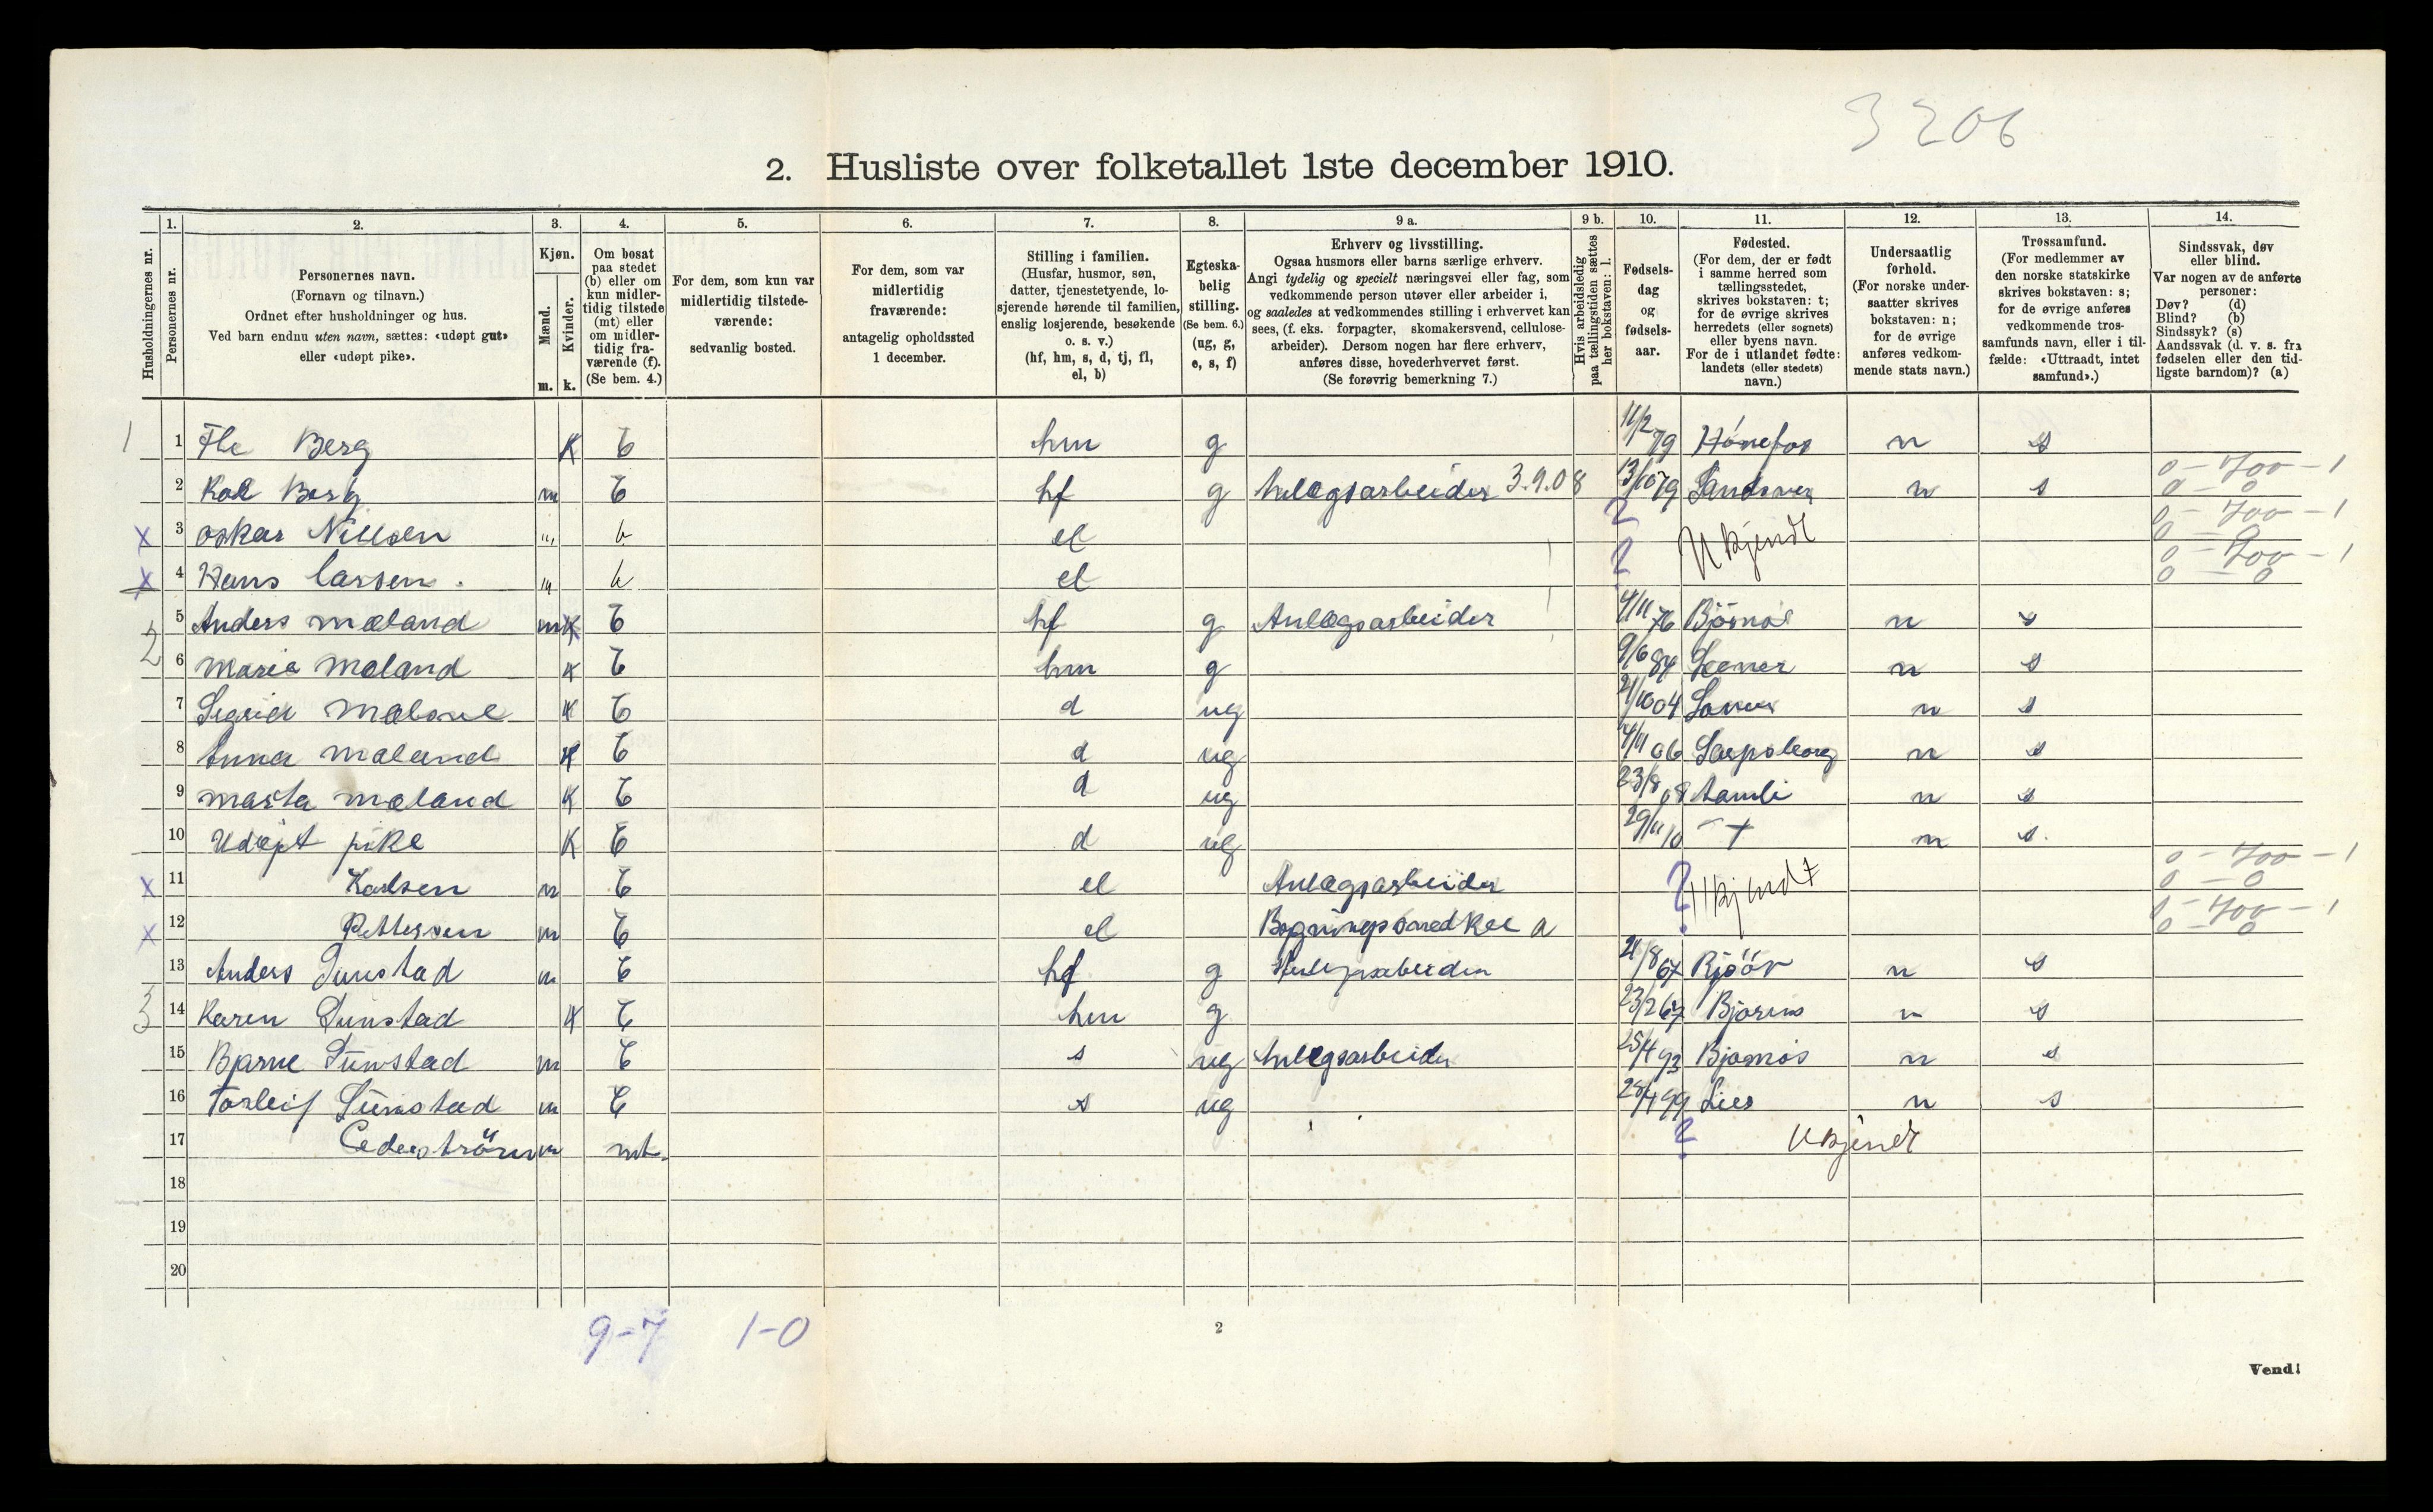 3206
2. Husliste over folketallet 1ste december 1910.
1. 2. 3. 4. 5. 6. 7. 8. 9 a. 9 b. 10. 11. 12. 13. 14.
Husholdningernes nr.
Personernes nr.
Personernes navn.
(Fornavn og tilnavn.)
Ordnet efter husholdninger og hus.
Ved barn endnu uten navn, sættes: «udøpt gut»
eller «udøpt pike».
Kjøn.
Mænd.
Kvinder.
m. k.
Om bosat
paa stedet
(b) eller om
kun midler-
tidig tilstede
(mt) eller
om midler-
tidig fra-
værende (f).
(Se bem. 4.)
For dem, som kun var
midlertidig tilstede-
værende:
sedvanlig bosted.
For dem, som var
midlertidig
fraværende:
antagelig opholdssted
1 december.
Stilling i familien.
(Husfar, husmor, søn,
datter, tjenestetyende, lo-
sjerende hørende til familien,
enslig losjerende, besøkende
o. s. v.)
(hf, hm, s, d, tj, fl,
el, b)
Egteska-
belig
stilling.
(Se bem. 6.)
(ug, g,
e, s, f)
Erhverv og livsstilling.
Ogsaa husmors eller barns særlige erhverv.
Angi tydelig og specielt næringsvei eller fag, som
vedkommende person utøver eller arbeider i,
og saaledes at vedkommendes stilling i erhvervet kan
sees, (f. eks. forpagter, skomakersvend, cellulose-
arbeider). Dersom nogen har flere erhverv,
anføres disse, hovederhvervet først.
(Se forøvrig bemerkning 7.)
Hvis arbeidsledig
paa tællingstiden sættes
her bokstaven: l.
Fødsels-
dag
og
fødsels-
aar.
Fødested.
(For dem, der er født
i samme herred som
tællingsstedet,
skrives bokstaven: t;
for de øvrige skrives
herredets (eller sognets)
eller byens navn.
For de i utlandet fødte:
landets (eller stedets)
navn.)
Undersaatlig
forhold.
(For norske under-
saatter skrives
bokstaven: n;
for de øvrige
anføres vedkom-
mende stats navn.)
Trossamfund.
(For medlemmer av
den norske statskirke
skrives bokstaven: s;
for de øvrige anføres
vedkommende tros-
samfunds navn, eller i til-
fælde: «Uttraadt, intet
samfund».)
Sindssvak, døv
eller blind.
Var nogen av de anførte
personer:
Døv? (d)
Blind? (b)
Sindssyk? (s)
Aandssvak (d. v. s. fra
fødselen eller den tid-
ligste barndom)? (a)
1 1 Berg K b hm g 79 Hönefos n s
2 Berg m b hf g Anlægsarbeider 3.9.08 13/10 79 Sandsver n s 0-700-1 0-0
x 3 Oskar Nillsen " b el ? Ukjendt 0-700-1 0-0
x 4 Hans Larsen. " b el ? 0-700-1 0-0
2 5 Anders Mæland m b hf g Anlægsarbeider 4/11 76 n s
6 Maria Mæland k b hm g 9/6 84 n s
7 K b d ug 21/10 04 n s
8 Anna Mæland K b d ug 4/11 06 Sarpsborg n s
9 Marta Mæland K b d ug 23/8 08 Aamli n s
10 Udøpt pike K b d ug 29/11 10 t n s.
x 11 Karlsen m b el Anlægsarbeider ? Ukjendt 0-700-1 0-0
x 12 Pettersen m b el Bygningssnedker a 0-700-1 0-0
13 Anders Sunstad m b hf g 21/8 67 n s
3 14 Karen Sunstad K b hm g 23/2 67 n s
15 Bjarne Sunstad m b s ug Anlægsarbeider 25/4 93 n s
16 Torleif Sunstad m b s ug 28/4 99 n s
17 Cederström m mt. ? Ukjendt
18
19
20
9-7 1-0
2
Vend!